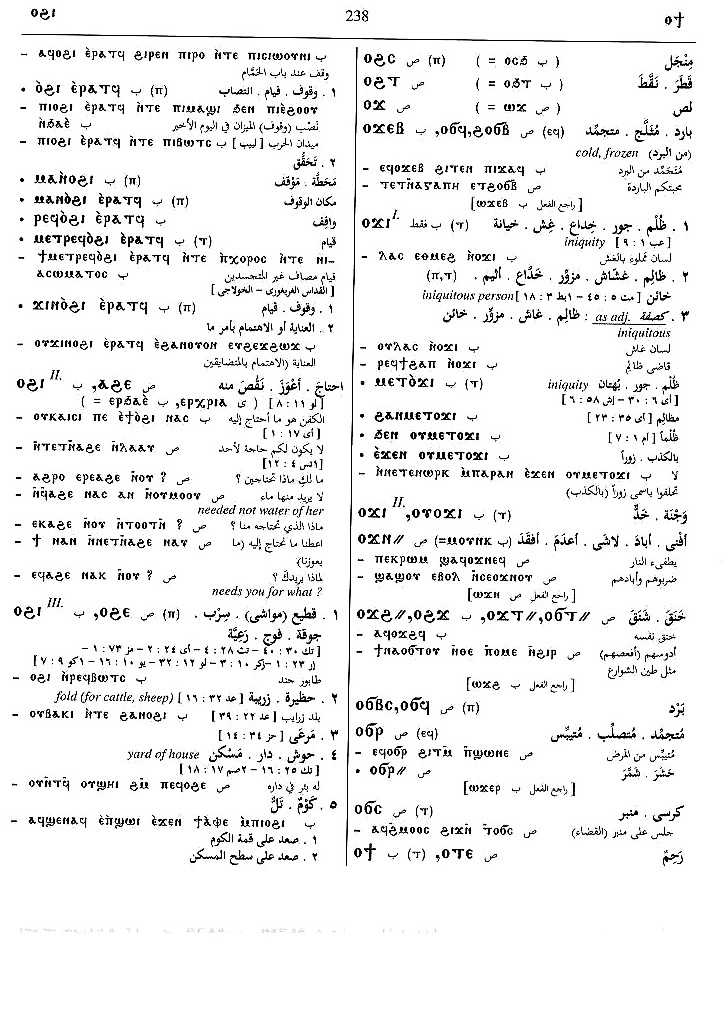 ⲟϩⲓ 238 ⲟϯ
– ⲁϥⲟϩⲓ ⲉ̀ⲣⲁⲧϥ ϩⲓⲣⲉⲛ ⲡⲓⲣⲟ ⲛ̀ⲧⲉ ⲡⲓⲥⲓⲱⲟⲩⲛⲓ ب
وقف عند باب الحمَّام
• ⲟ̀ϩⲓ ⲉ̀ⲣⲁⲧϥ ب (ⲡ) ١ . وقوف . قيام . انتصاب
– ⲡⲓⲟϩⲓ ⲉ̀ⲣⲁⲧϥ ⲛ̀ⲧⲉ ⲡⲓⲙⲁϣⲓ ϧⲉⲛ ⲡⲓⲉ̀ϩⲟⲟⲩ
ⲛ̀ϧⲁⲉ̀ ب نَصْب (وقوف) الميزان في اليوم الأخير
– ⲡⲓⲟϩⲓ ⲉ̀ⲣⲁⲧϥ ⲛ̀ⲧⲉ ⲡⲓⲃⲱⲧⲥ ب [لبيب] ميدان الحرب
٢ . تَحَقُّق
• ⲙⲁⲛ̀ⲟϩⲓ ب (ⲡ) مَحَطَّة . مَوْقف
• ⲙⲁⲛⲟ̀ϩⲓ ⲉ̀ⲣⲁⲧϥ ب (ⲡ) مكان الوقوف
• ⲣⲉϥⲟ̀ϩⲓ ⲉ̀ⲣⲁⲧϥ ب واقِف
• ⲙⲉⲧⲣⲉϥⲟ̀ϩⲓ ⲉ̀ⲣⲁⲧϥ ب (ⲧ) قيام
– ϯⲙⲉⲧⲣⲉϥⲟ̀ϩⲓ ⲉ̀ⲣⲁⲧϥ ⲛ̀ⲧⲉ ⲛ̀ⲭⲟⲣⲟⲥ ⲛ̀ⲧⲉ ⲛⲓ-
ⲁⲥⲱⲙⲁⲧⲟⲥ ب قيام مصاف غير المتجسدين
[ القداس الغريغورى – الخولاجى ]
• ϫⲓⲛⲟ̀ϩⲓ ⲉ̀ⲣⲁⲧϥ ب (ⲡ) ١ . وقوف . قيام
٢ . العناية أو الاهتمام بأمر ما
– ⲟⲩϫⲓⲛⲟϩⲓ ⲉ̀ⲣⲁⲧϥ ⲉ̀ϩⲁⲛⲟⲩⲟⲛ ⲉⲩϩⲉϫϩⲱϫ ب
العناية (الاهتمام بالمتضايقين
ⲟϩⲓ II. ب ,ⲁϩⲉ ص احتاج . أعْوَزَ . نَقُصَ منه
( = ⲉⲣϧⲁⲉ̀ ب ,ⲉⲣⲭⲣⲓⲁ ى ) [لو ١١ : ٨]
– ⲟⲩⲕⲁⲓⲥⲓ ⲡⲉ ⲉ̀ϯⲟ̀ϩⲓ ⲛⲁⲥ ب الكفن هو ما أحتاج إليه
[أى ١٧ : ١]
– ⲛ̀ⲧⲉⲧⲛ̄ⲁϩⲉ ⲛ̀ⲗⲁⲁⲩ ص لا يكون لكم حاجة لأحد
[١تس ٤ : ١٢]
– ⲁϩⲣⲟ ⲉⲣⲉⲁϩⲉ ⲛ̀ⲟⲩ ? ص ما لكِ ماذا تحتاجين ؟
– ⲛ̄ϥⲁϩⲉ ⲛⲁⲥ ⲁⲛ ⲛ̀ⲟⲩⲙⲟⲟⲩ ص لا يريد منها ماء
needed not water of her
– ⲉⲕⲁϩⲉ ⲛ̀ⲟⲩ ⲛ̄ⲧⲟⲟⲧⲛ̄ ? ص ماذا الذي تحتاجه منا ؟
– ϯ ⲛⲁⲛ ⲛ̀ⲛⲉⲧⲛ̄ⲁϩⲉ ⲛⲁⲩ ص اعطنا ما نحتاج إليه (ما
يعوزنا)
– ⲉϥⲁϩⲉ ⲛⲁⲕ ⲛ̀ⲟⲩ ? ص لماذا يريدك ؟
needs you for what ?
ⲟϩⲓ III. ب ,ⲟϩⲉ ص (ⲡ) ١ . قطيع (مواشى) . سِرْب .
جوقة . فوج . رَعِيَّة
[تك ٣٠ : ٤٠ – تث ٢٨ : ٤ – أى ٢٤ : ٢ – مز ٧٣ : ١ –
إر ٢٣ : ١ – زكر ١٠ : ٣ – لو ١٢ : ٣٢ – يو ١٠ : ١٦ – ١كو ٩ : ٧]
– ⲟϩⲓ ⲛ̀ⲣⲉϥⲃⲱⲧⲥ ب طابور جند
٢ . حظيرة . زريبة [عد ٣٢ : ١٦] fold (for cattle, sheep)
– ⲟⲩⲃⲁⲕⲓ ⲛ̀ⲧⲉ ϩⲁⲛⲟϩⲓ ب [عد ٢٢ : ٣٩] بلد زرايب
٣ . مَرعَى [حز ٣٤ : ١٤]
٤ . حوش . دار . مَسْكَن yard of house
[تك ٢٥ : ١٦ – ٢صم ١٧ : ١٨]
– ⲟⲩⲛ̄ⲧϥ̄ ⲟⲩϣⲏⲓ ϩⲙ̄ ⲡⲉϥⲟϩⲉ ص له بئر في داره
٥ . كَوْمٌ . تَلّ
– ⲁϥϣⲉⲛⲁϥ ⲉ̀ⲡ̀ϣⲱⲓ ⲉϫⲉⲛ ϯⲁ̀ⲫⲉ ⲙ̀ⲡⲓⲟϩⲓ ب
١ . صعد على قمة الكوم
٢ . صعد على سطح المسكن
ⲟϩⲥ ص (ⲡ) ( = ⲟⲥϧ ب ) مِنْجَل
ⲟϩⲧ ص ( = ⲟϭⲧ ب ) قَطَرَ . نَقَّطَ
ⲟϫ ص ( = ⲱϫ ص ) لص
ⲟϫⲉⲃ ب ,ⲟϭϥ,ϩⲟϭⲃ ص (eq) بارد . مُثلَّج . متجمِّد
cold, frozen (من البرد)
– ⲉϥⲟϫⲉⲃ ϩⲓⲧⲉⲛ ⲡⲓⲭⲁϥ ب مُتَجَمِّد من البرد
– ⲧⲉⲧⲛ̄ⲁⲅⲁⲡⲏ ⲉⲧϩⲟϭⲃ ص محبتكم الباردة
[ⲱϫⲉⲃ ب راجع الفعل ]
ⲟϫⲓ I. ب فقط (ⲧ) ١ . ظُلْم . جور . خِداع . غِش . خيانة
iniquity [عب ١ : ٩]
– ⲗⲁⲥ ⲉⲑⲙⲉϩ ⲛ̀ⲟϫⲓ ب لسان مملوء بالغش
٢ . ظالِم . غشّاش . مزوِّر . خدَّاع . أثيم . (ⲡ,ⲧ)
خائن [مت ٥ : ٤٥ – ١بط ٣ : ١٨] iniquitous person
٣ . كصفة as adj. : ظالِم . غاش . مزوِّر . خائن
iniquitous
– ⲟⲩⲗⲁⲥ ⲛ̀ⲟϫⲓ ب لسان غاش
– ⲣⲉϥϯϩⲁⲡ ⲛ̀ⲟϫⲓ ب قاضى ظالم
• ⲙⲉⲧⲟ̀ϫⲓ ب (ⲧ) iniquity ظُلْم . جور . بُهتان
[أى ٦ : ٣٠ – إش ٥٨ : ٦]
• ϩⲁⲛⲙⲉⲧⲟϫⲓ ب [أى ٣٥ : ٢٣] مظالِم
• ϧⲉⲛ ⲟⲩⲙⲉⲧⲟϫⲓ ب [أم ١ : ٧] ظُلماً
• ⲉ̀ϫⲉⲛ ⲟⲩⲙⲉⲧⲟϫⲓ ب بالكذب . زوراً
– ⲛ̀ⲛⲉⲧⲉⲛⲱⲣⲕ ⲙ̀ⲡⲁⲣⲁⲛ ⲉ̀ϫⲉⲛ ⲟⲩⲙⲉⲧⲟϫⲓ ب لا
تحلفوا باسمى زوراً (بالكذب)
ⲟϫⲓ II. ,ⲟⲩⲟϫⲓ ب (ⲧ) وَجْنَة . خَدٌّ
ⲟϫⲛ// ص (=ⲙⲟⲩⲛⲕ ب) أفْنى . أبادَ . لاشَى . أعدَمَ . أفقَدَ
– ⲡⲉⲕⲣⲱⲙ ϣⲁϥⲟϫⲛⲉϥ ص يطفىء النار
– ϣⲁϣⲟⲩ ⲉⲃⲟⲗ ⲛ̀ⲥⲉⲟϫⲛⲟⲩ ص ضربوهم وأبادهم
[ⲱϫⲛ ص راجع الفعل ]
ⲟϫϩ//,ⲟϩϫ ب ,ⲟϫⲧ//,ⲟϭⲧ// ص خَنَقَ . شَنَقَ
– ⲁϥⲟϫϩϥ ب خنق نفسه
– ϯⲛⲁⲟϭⲧⲟⲩ ⲛ̀ⲑⲉ ⲛ̀ⲟⲙⲉ ⲛ̀ϩⲓⲣ ص أدوسهم (أقمعهم)
مثل طين الشوارع
[ⲱϫϩ ب راجع الفعل ]
ⲟϭⲃⲥ,ⲟϭϥ ص (ⲡ) بَرْد
ⲟϭⲣ ص (eq) مُتجمِّد . مُتصلِّب . مُتيبِّس
– ⲉϥⲟϭⲣ ϩⲓⲧⲙ̄ ⲡ̄ϣⲱⲛⲉ ص مُتيبِّس من المرض
• ⲟϭⲣ// ص حَشَرَ . سَمَّرَ
[ⲱϫⲉⲣ ب راجع الفعل ]
ⲟϭⲥ ص (ⲧ) كرسى . منبر
– ⲁϥϩⲙⲟⲟⲥ ϩⲓϫⲛ̄ ⲧ̄ⲟϭⲥ ص جلس على منبر (القضاء)
ⲟϯ ب (ⲧ) ,ⲟⲧⲉ ص رَحِمٌ